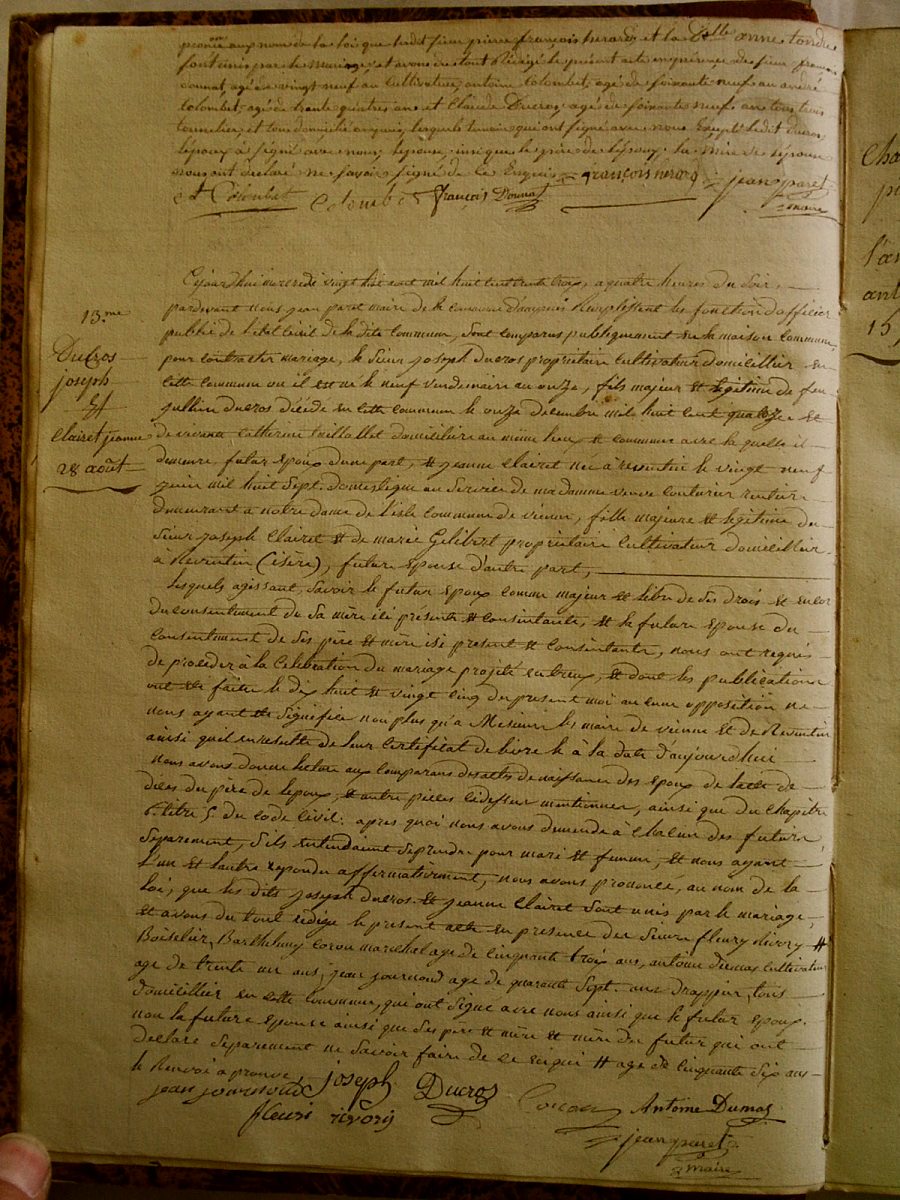 prononcé aux nom de la loi que ledit sieur pierre françois herard et la dlle anne
sont unis par le mariage et avons du tout rédigé le présent acte en présence de sieur françois
donnat, agé de vingt neuf an cultivateur, antoine Colombet, agé de soixante neuf an andré
Colombet, agé de trente quatre an et Claude Ducros, agé de soixante neuf an tous trois
et tous domicilié lesquels temoin qui ont signé avec nous Excepté ledit Ducros,
l'epoux a signé avec nous, l'epouse, insi que le père de l'époux, la mère de l'épouse
nous ont declaré ne savoir signé de ce Enquis
françois herard
jean paret
maire
et Colombet Colombé François Donnat
13.me
Ducros
joseph
Et
Clairet jeanne
28 août
Cejourdhui mercredi vingt huit aout mil huit cent trente trois, a quatre heures du soir,
pardevant nous jean paret maire de la commune d'ampuis Remplissent les fonction d'officier
publié de l'état civil de la dite commune, sont comparus publiquement en la maison commune,
pour contracter mariage, le sieur joseph ducros propriétaire cultivateur domicillier en
cette commune ou il est né le neuf vendemiaire an onze, fils majeur et legitime de feu
jullien ducros décédé en cette commune le onze decembre mil huit cent quatoze et
de vivante catherine domiciliere au même lieu et commune avec la quelle il
demeure, futur epoux d'une part, et jeanne Clairet née à reventin le vingt neuf
juin mil huit sept. domestique au service de madamme veuve couturier rentiere
demeurant a notre dame de l'isle commune de vienne, fille majeure et legitime du
sieur joseph Clairet et de marie Gelibert propriétaire cultivateur domicillier
a Reventin (isère), future epouse d'autre part,
Lesquels agissant, savoir le futur epoux comme majeur et libre de ses drois et encor
du consentement de sa mère ici présente et consentante, et la future epouse du
consentement de ses père et mère isi present et consentante, nous ont requis
de proceder à la celebration du mariage projété entreux, et dont les publications
ont été faites le dix huit et vingt cinq du present moi aucune opposition ne
nous ayant été signifiée non plus qu'a Messieurs les maire de vienne et de Reventin
ainsi quil en resulte de leur certificat delivré le à la date d'aujourdhui
nous avons donné lecture aux comparans des actes de naissance des epoux de l'acte de
décès du père de l'epoux, et autre pièces cidessus mentionner, ainsi que du chapitre
6. titre 5 du code civil: apres quoi nous avons demandé à chacun des futurs
separement, s'ils entendaient se prendre pour mari et femme, et nous ayant
l'un et l'autre repondu affirmativement, nous avons prononcé, au nom de la
loi, que les dits joseph ducros et jeanne Clairet sont unis par le mariage,
et avons du tout redigé le present acte en presence des sieurs fleury rivory #
Boiselier, Barthelemy coron marechal age de cinquante trois ans, antoine dumas cultivateur
age de trente un ans, jean journoud age de quarante sept ans drappier, tous
domicillier en cette commune, qui ont signé avec nous ainsi que le futur epoux.
non la future epouse ainsi que ses père et mère et mère du futur qui ont
declaré separement ne savoir faire de ce enquis # age de cinquante six ans
le Renvoi aprouvé,
jean journoud joseph Ducros
fleuri rivory
Coron Antoine Dumas
jean paret
maire
cha
p
l'an
ant
15